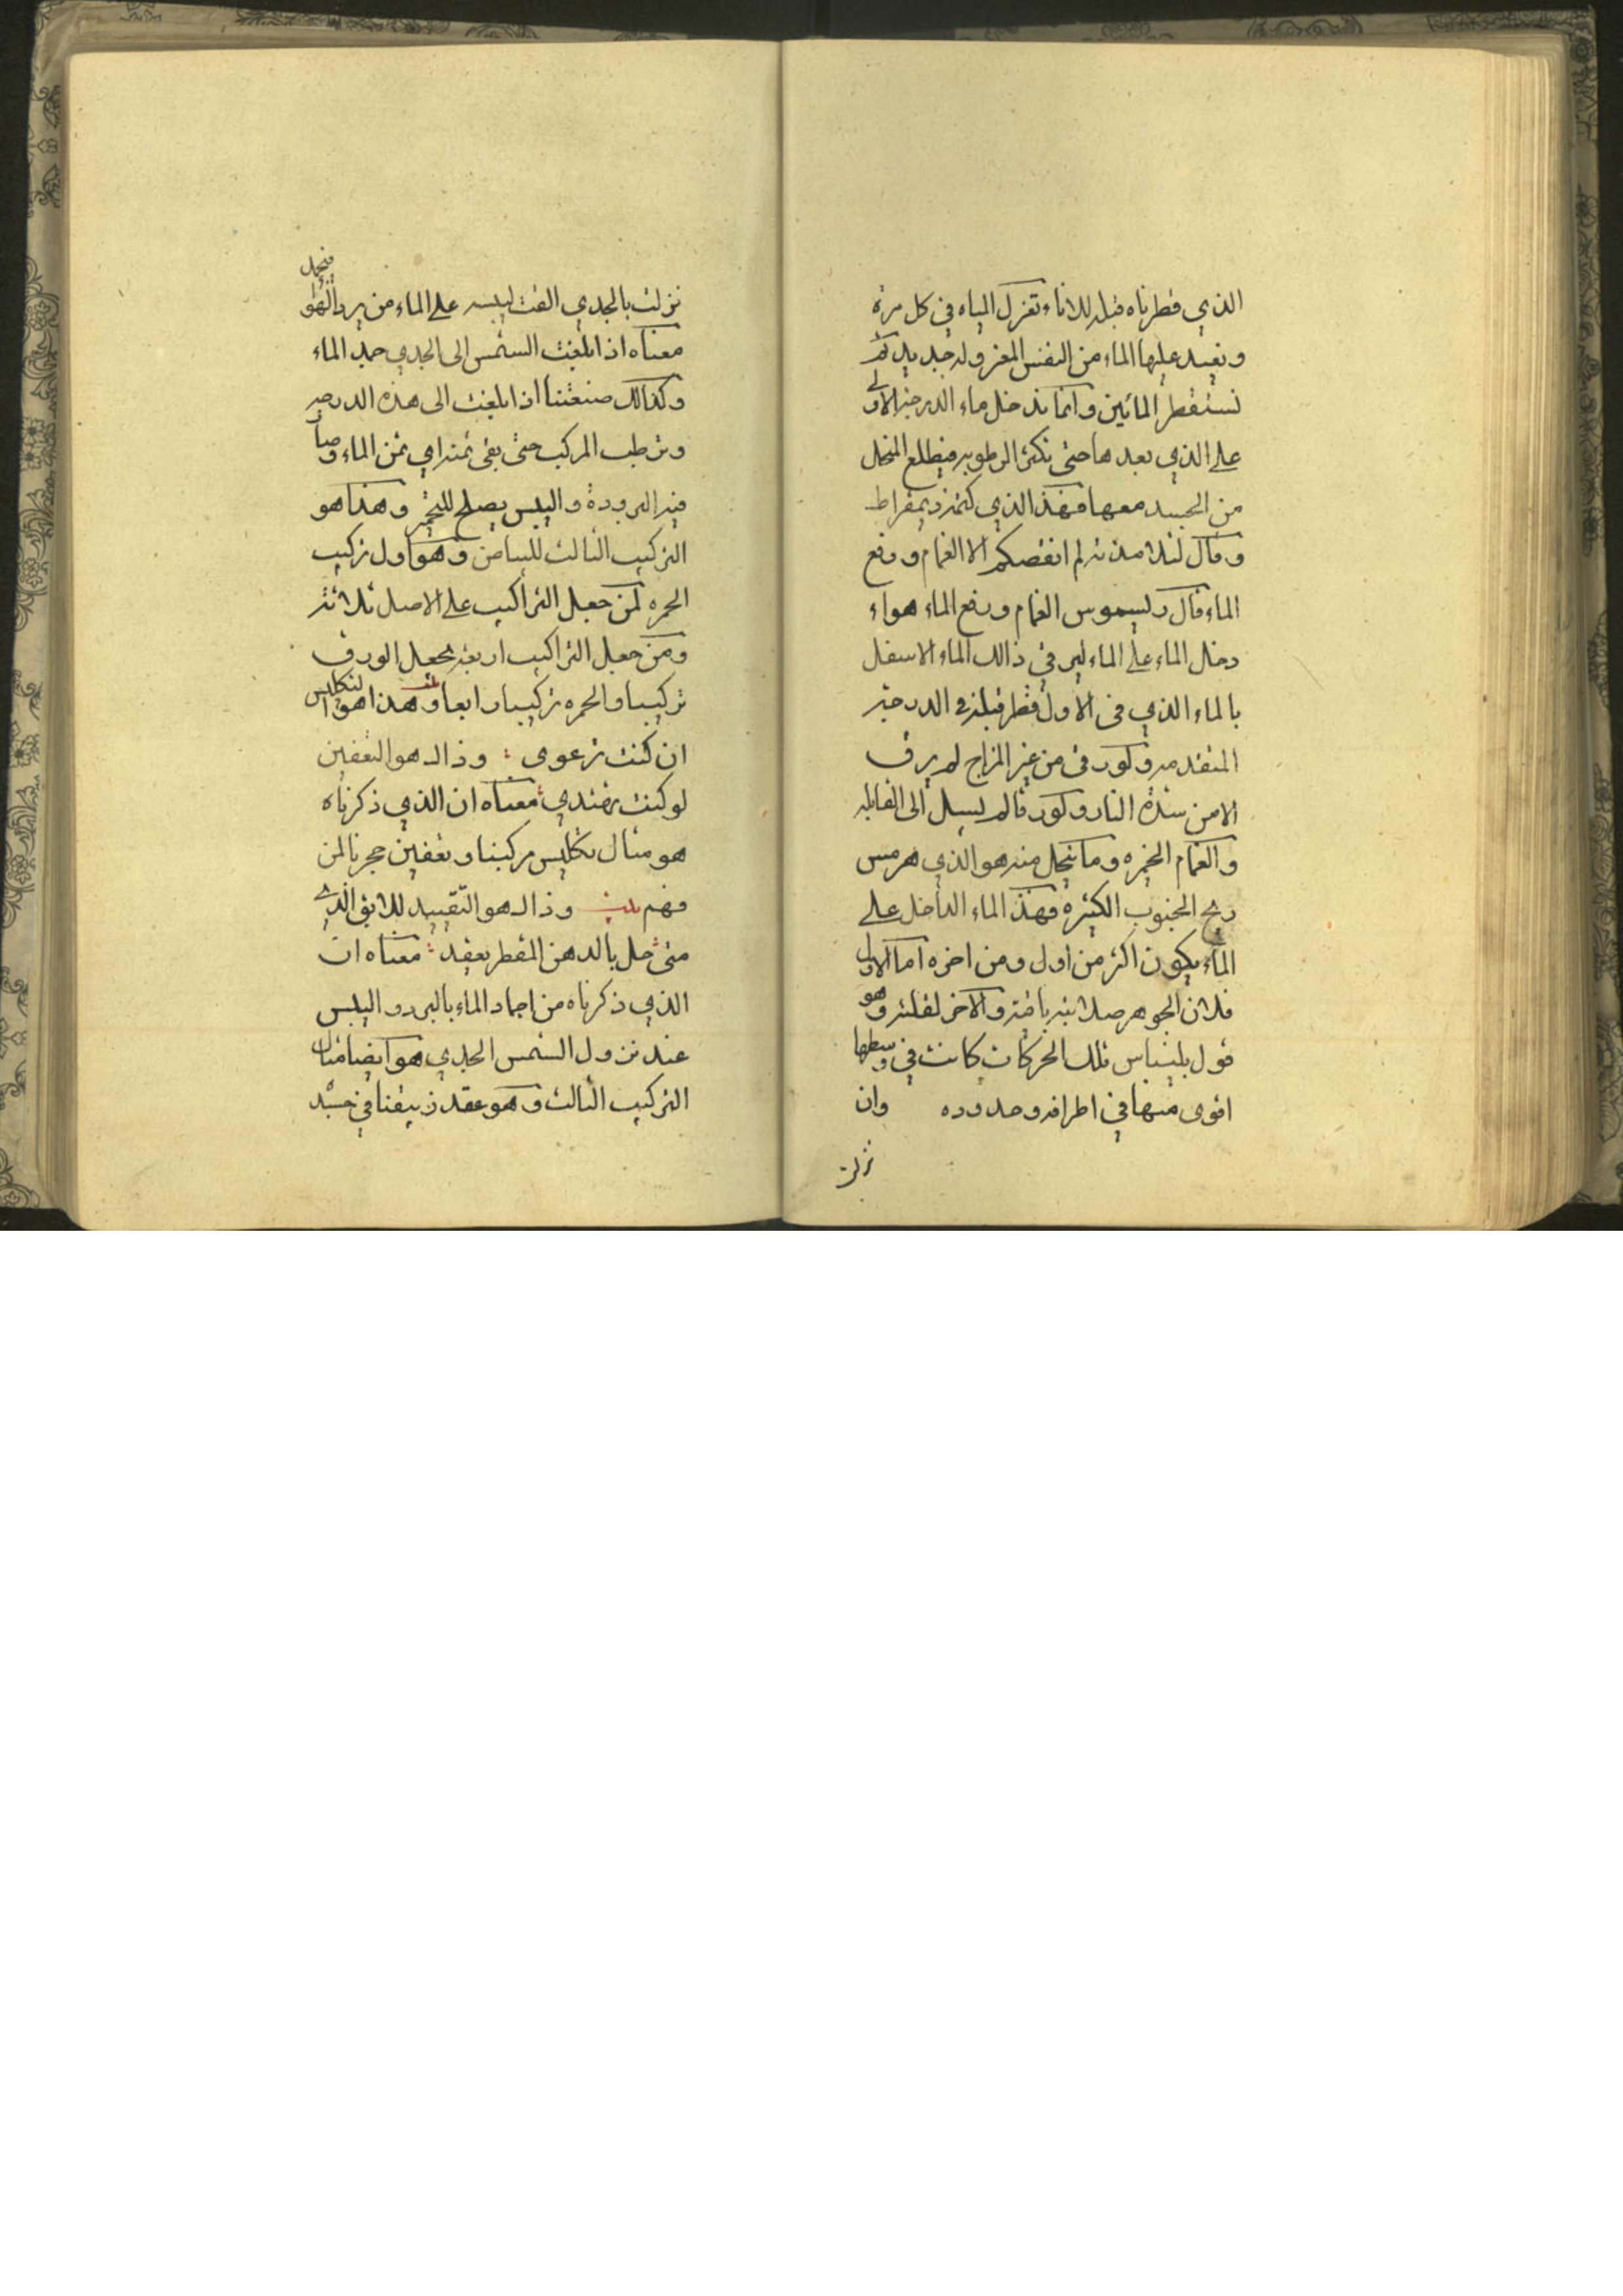 الذي قطرناه قبله للاناء تعزل المياه في كل مرة
وتعيد عليها الماء من النفس المعزوله جديد ثم
تستقطر المائين وانما تدخل ماء الدرجة الاولى
على الذي بعدها حتى تكثر الرطوبه فيطلع المنحل
من الجسد معها فهذا الذي كتمه ديمقراط
وقال لتلامذته لم انقصكم الا الغمام ورفع
الماء قال رسيموس الغمام ورفع الماء هواء
دخال الماء على الماء ليرقى ذالك الماء الاسفل
بالماء الذي في الاول قطر قبله في الدرجة
المتقدمه وكورقى من غير المزاج لم يرق
الا من شدة النار وكورقا لم يسيل الى القابله
والغمام الخمره وما ينحل منه هو الذي هرمس
ريح الجنوب الكثيره فهذا الماء الداخل على
الماء يكون اكثر من اول ومن اخره اما الاول
فلان الجوهر صلابته باقية والاخر لقلته وهو
قول بلنياس تلك الحركات كانت في وسطها
اقوى منها في اطرافه وحدوده وان
نزلت
فيحمل
نزلت بالجدي القت ليبسه على الماء من برد الهوا
معناه اذا بلغت الشمس الى الجدي جمد الماء
وكذالك صنعتنا اذا بلغت الى هذه الدرجه
وترطب المركب حتى بقي ثمنه اي ثمن الماء وصار
فيه البرودة واليبس يصلح للتخمير وهذا هو
التركيب الثالث للبياض وهو اول تركيب
الحمره لمن جعل التراكيب على الاصل ثلاثة
ومن جعل التراكيب اربعه يجعل الورق
تركيبا والحمره تركيبا رابعا وهذا هو التكليس
ان كنت ترعوى وذاك هو التعفين
لو كنت تهتدي معناه ان الذي ذكرناه
هو مثال تكليس مركبنا وتعفين حجرنا لمن
فهم وذاك هو التقييد للابق الذي
متى حل بالدهن المقطر يعقد معناه ان
الذي ذكرناه من اجماد الماء بالبرد واليبس
عند نزول الشمس الجدي هو ايضا مثال
التركيب الثالث وهو عقد زيبقنا في جسد